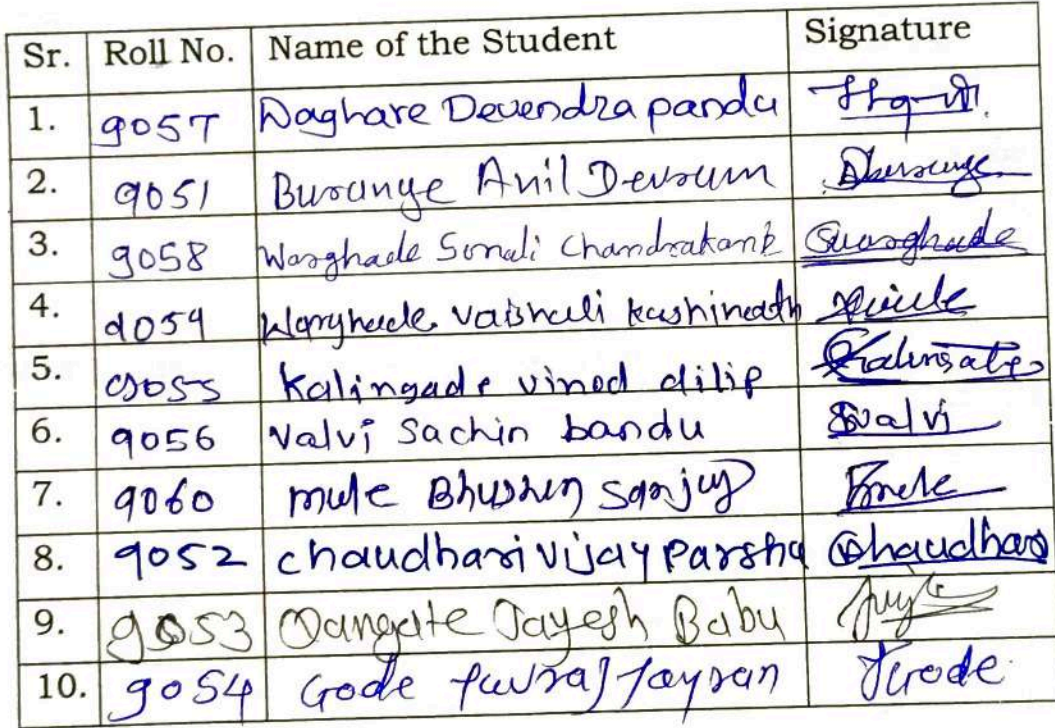 Sr. Roll No. Name of the Student Signature
1. 9057 Daghare Devendra pandu
2. 9051 Burange Anil Devram Aburange
3. 9058 Warghade Sonali Chandrakant Swarghade
4. 9059 Warghade vaishali kashinath
5. 9055 Kalingade vinod dilip
6. 9056 Valvi Sachin bandu Svalvi
7. 9060 mule Bhushan Sanjay Bmule
8. 9052 chaudhari vijay Parshu Chaudhari
9. 9053 Dangate Jayesh Babu
10. 9054 Gode Yuvraj Jayran YGode